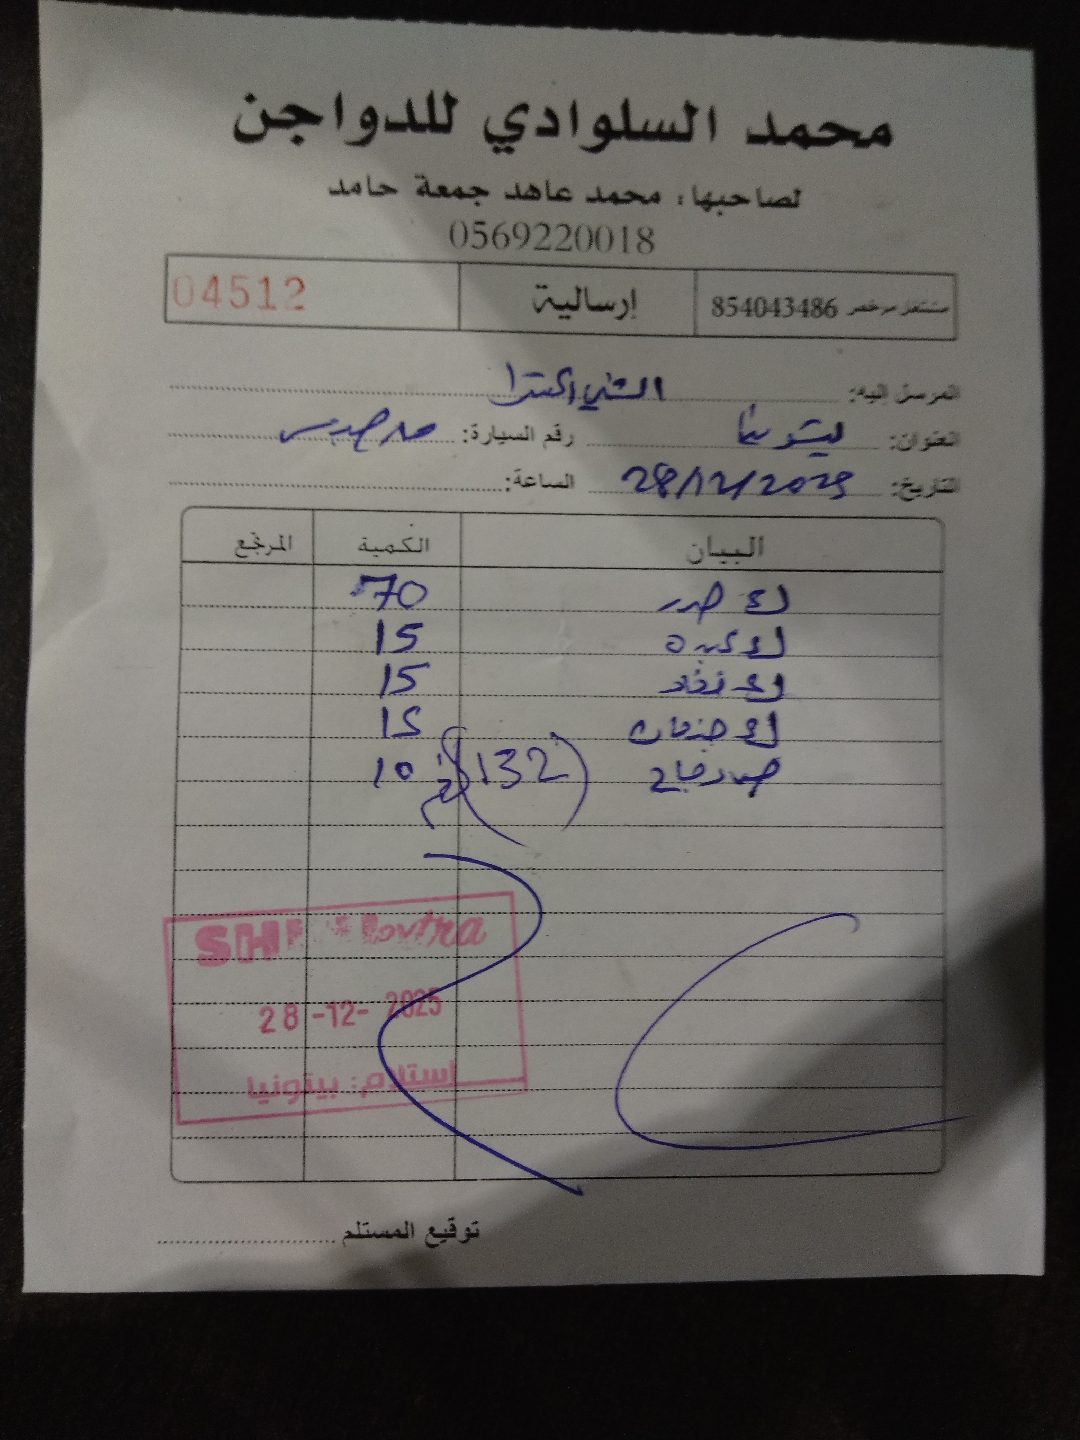 محمد السلوادي للدواجن
لصاحبها: محمد عاهد جمعة حامد
0569220018
مشتغل مرخص 854043486 إرسالية 04512
المرسل إليه: الشني اكسترا
العنوان: بيتونيا رقم السيارة:
التاريخ: 28/12/2025 الساعة:
البيان الكمية المرتجع
صدر 70
كبده 15
15
15
(132) 10
SH Extra
28-12-2025
استلام: بيتونيا
توقيع المستلم